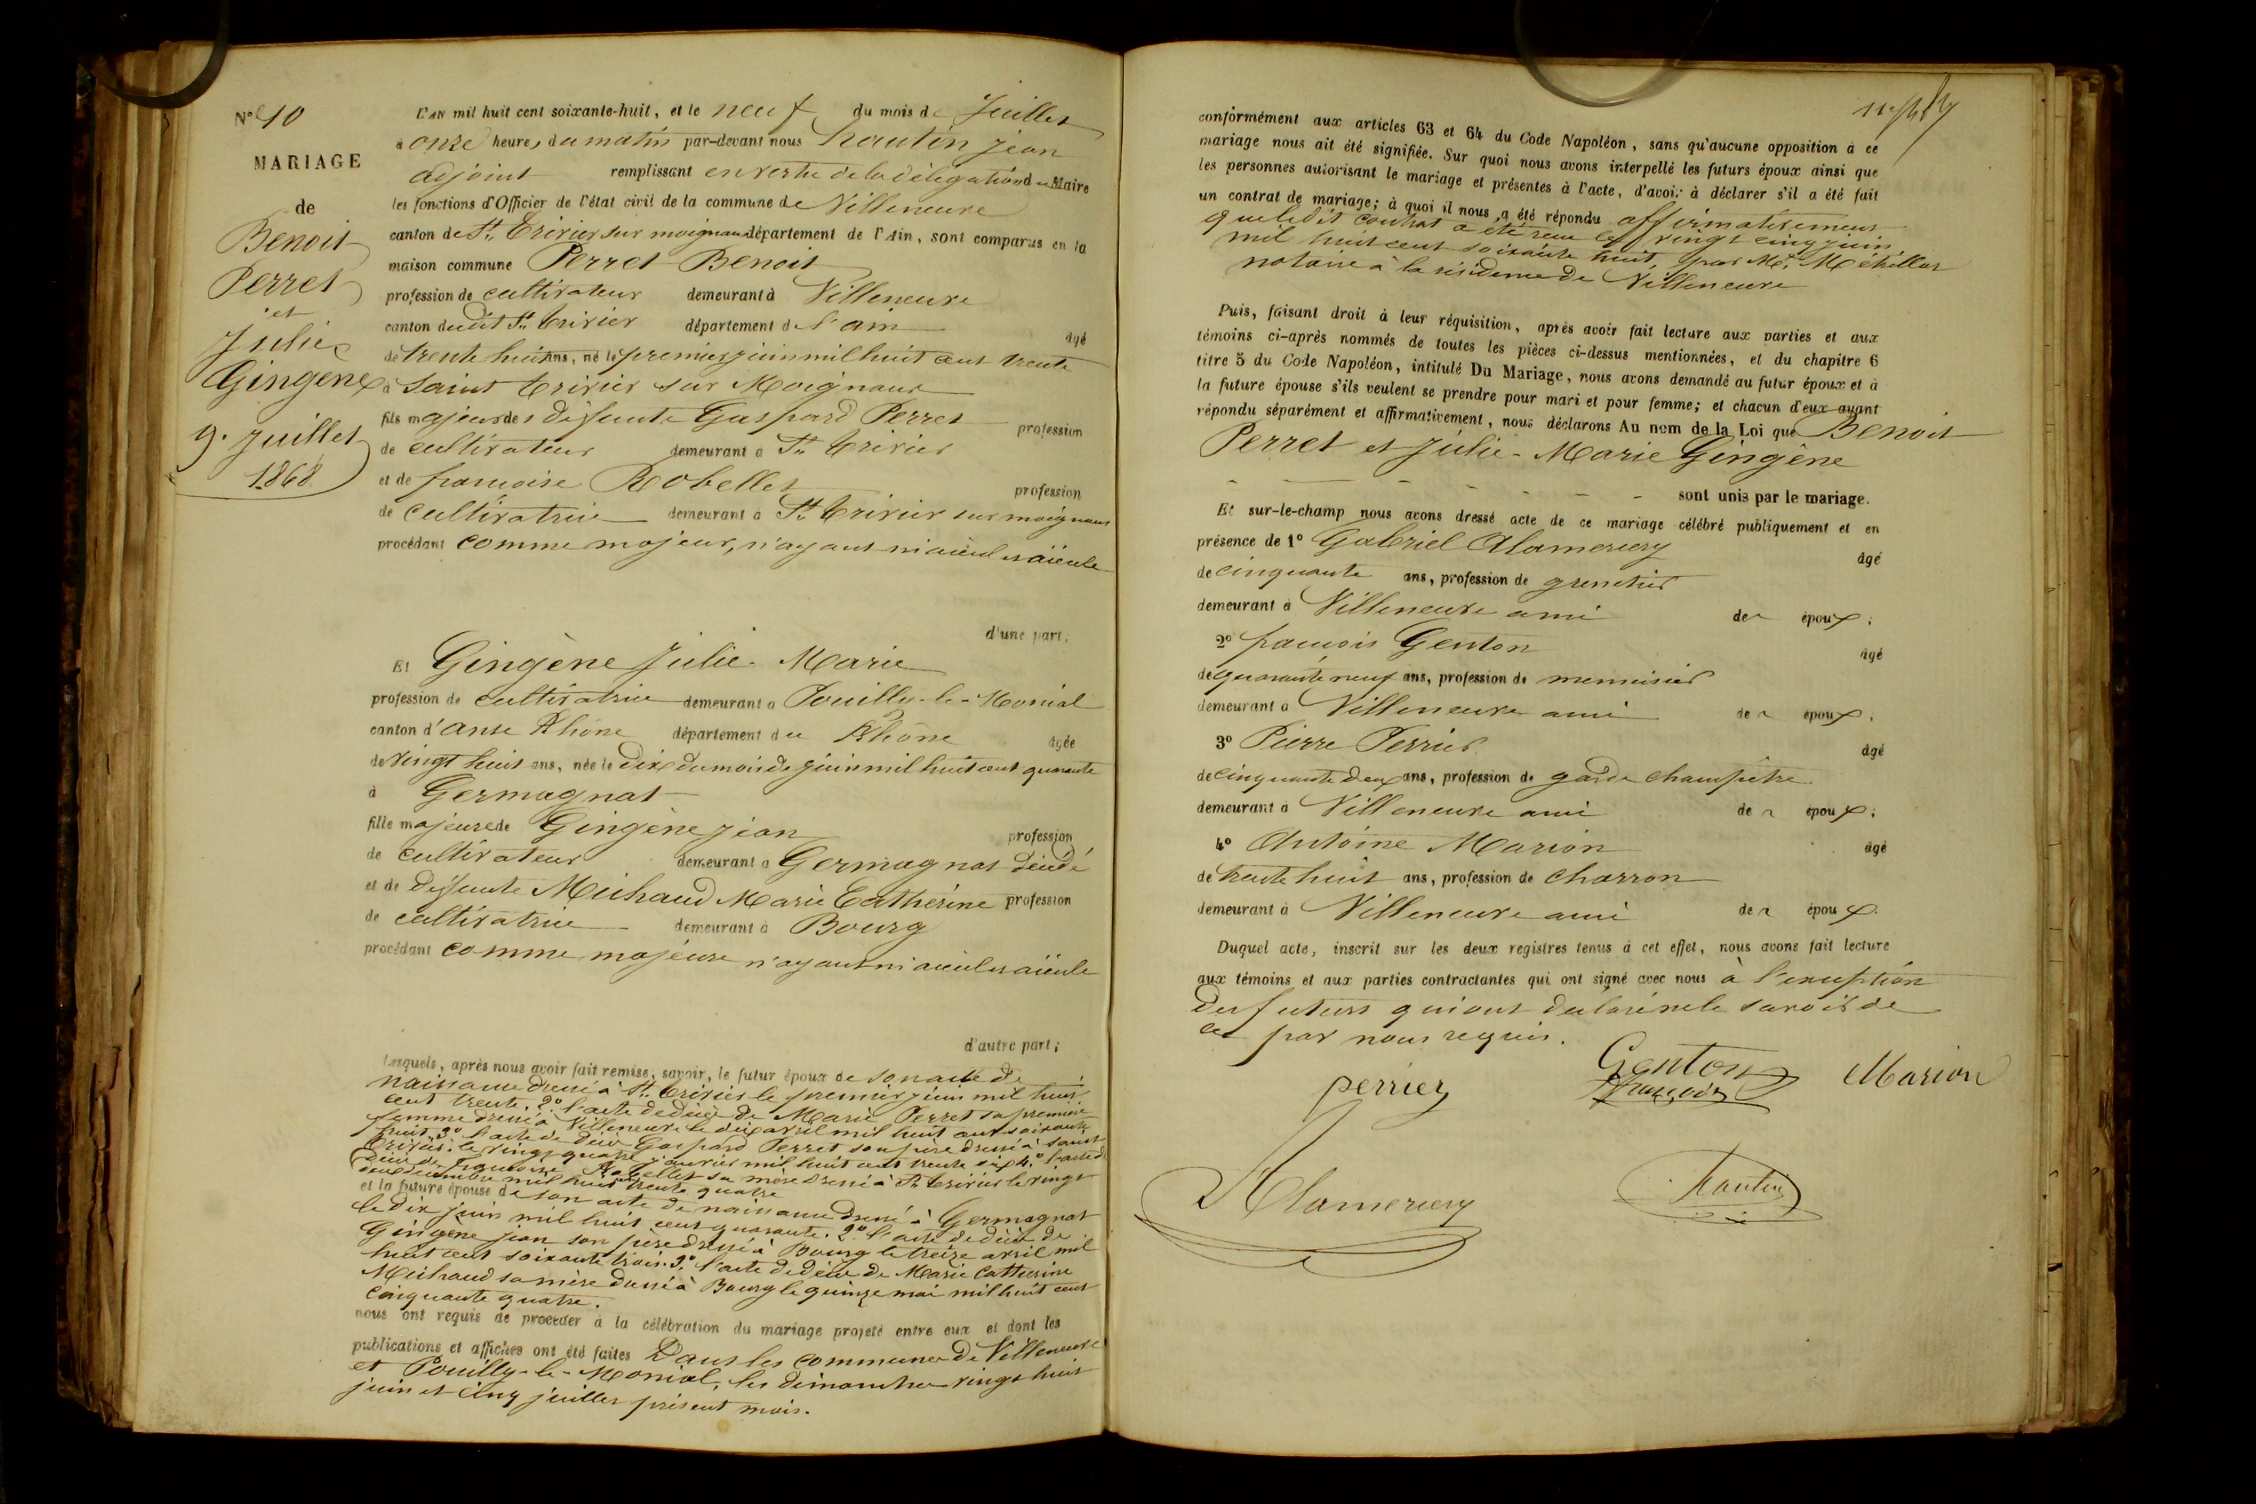 N° 10
MARIAGE
de
Benoit
Perret
et
Julie
Gingène
9. Juillet
1868
L'AN mil huit cent soixante-huit, et le neuf du mois de Juillet
à onze heures du matin par-devant nous hautin jean
adjoint remplissant en vertu de la délégation du Maire
les fonctions d'Officier de l'état civil de la commune de Villeneuve
canton de St. Trivier sur moignans département de l'Ain, sont comparus en la
maison commune Perret Benoit
profession de cultivateur demeurant à Villeneuve
canton dudit St. trivier département de l'ain âgé
de trente huit ans, né le premier juin mil huit cent trente
à Saint trivier sur Moignans
fils majeur des défunts Gaspard Perret profession
de cultivateur demeurant à St. trivier
et de françoise Robellet profession
de cultivatrice demeurant à St trivier sur moignans
procédant comme majeur, n'ayant ni aïeul ni aïeule
d'une part;
Et Gingène Julie-Marie
profession de cultivatrice demeurant à Pouilly-le-Monial
canton d'anse Rhône département du Rhône âgée
de vingt huit ans, née le dix du mois de juin mil huit cent quarante
à Germagnat
fille majeure de Gingène jean profession
de cultivateur demeurant à Germagnat décédé
et de défunte Michaud Marie Catherine profession
de cultivatrice demeurant à Bourg
procédant comme majeure n'ayant ni aïeul ni aïeule
d'autre part;
Lesquels, après nous avoir fait remise, savoir, le futur époux de son acte de
naissance dressé à St. trivier le premier juin mil huit
cent trente. 2° l'acte de décès de Marie Perret sa première
femme dressé à Villeneuve le dix avril mil huit cent soixante
huit. 3° l'acte de décès Gaspard Perret son père dressé à Saint
trivier le vingt quatre janvier mil huit cent trente six 4° l'acte de
décès de françoise Robellet sa mère dressé à St. trivier le vingt
deux décembre mil huit cent trente quatre
et la future épouse de son acte de naissance dressé à Germagnat
le dix juin mil huit cent quarante. 2° l'acte de décès de
Gingène jean son père dressé à Bourg le treize avril mil
huit cent soixante trois. 3° l'acte de décès de Marie Catherine
Michaud sa mère dressé à Bourg le quinze mai mil huit cent
cinquante quatre.
nous ont requis de procéder à la célébration du mariage projeté entre eux et dont les
publications et affiches ont été faites Dans les communes de Villeneuve
et Pouilly-le-Monial, les dimanches vingt huit
juin et cinq juillet présent mois.
conformément aux articles 63 et 64 du Code Napoléon, sans qu'aucune opposition à ce
mariage nous ait été signifiée. Sur quoi nous avons interpellé les futurs époux ainsi que
les personnes autorisant le mariage et présentes à l'acte, d'avoir à déclarer s'il a été fait
un contrat de mariage; à quoi il nous a été répondu affirmativement
que ledit contrat a été reçu le vingt cinq juin
mil huit cent soixante huit par Me.
notaire à la résidence de Villeneuve
Puis, faisant droit à leur réquisition, après avoir fait lecture aux parties et aux
témoins ci-après nommés de toutes les pièces ci-dessus mentionnées, et du chapitre 6
titre 5 du Code Napoléon, intitulé Du Mariage, nous avons demandé au futur époux et à
la future épouse s'ils veulent se prendre pour mari et pour femme; et chacun d'eux ayant
répondu séparément et affirmativement, nous déclarons Au nom de la Loi que Benoit
Perret et Julie-Marie Gingène
sont unis par le mariage.
Et sur-le-champ nous avons dressé acte de ce mariage célébré publiquement et en
présence de 1° Gabriel Alamercery âgé
de cinquante ans, profession de
demeurant à Villeneuve ami de l'époux;
2° françois Genton âgé
de quarante neuf ans, profession de menuisier
demeurant à Villeneuve ami de l'époux;
3° Pierre Perrier âgé
de cinquante deux ans, profession de garde champêtre
demeurant à Villeneuve ami de l'époux;
4° Antoine Marion âgé
de trente huit ans, profession de charron
demeurant à Villeneuve ami de l'époux.
Duquel acte, inscrit sur les deux registres tenus à cet effet, nous avons fait lecture
aux témoins et aux parties contractantes qui ont signé avec nous à l'exception
des futurs qui ont déclaré ne le savoir de
ce par nous requis.
perrier
Genton
françois
Marion
Alamercery
hautin